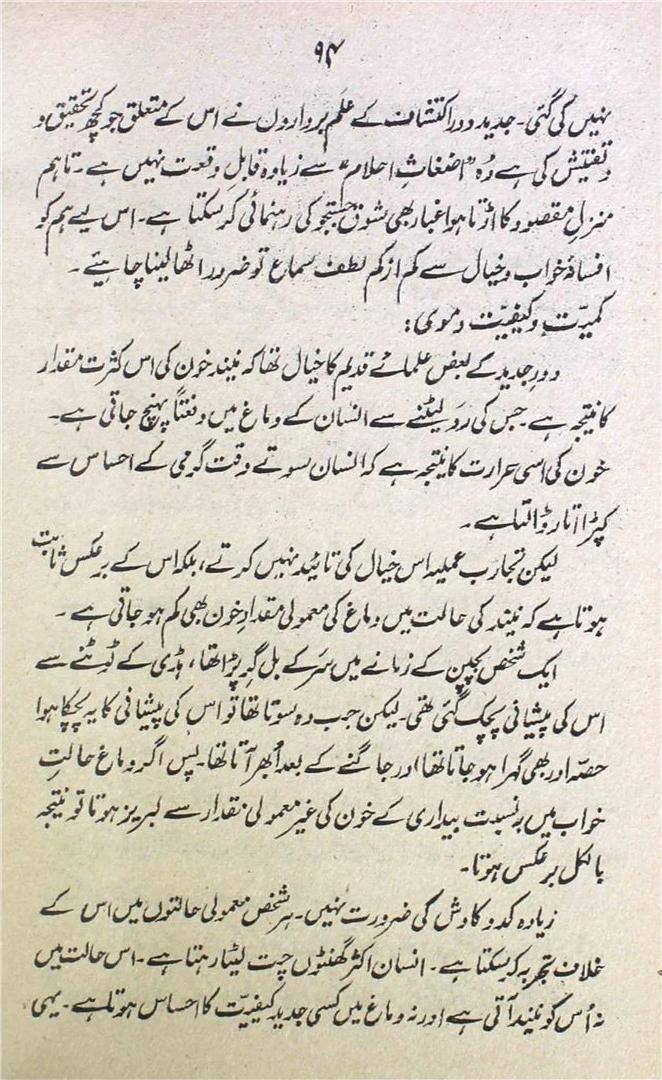 ۹۴
نہیں کی گئی۔ جدید دور اکتشاف کے علم برواروں نے اس کے متعلق جو کچھ تحقیق و
و تفتیش کی ہے وُہ "اضغاثِ احلام" سے زیادہ قابلِ وقعت نہیں ہے۔ تاہم
منزلِ مقصود کا اڑتا ہوا غبار بھی شوقِ جستجو کی رہنمائی کر سکتا ہے۔ اس لیے ہم کو
افسانۂ خواب و خیال سے کم از کم لطف سماع تو ضرور اٹھا لینا چاہیئے۔
کمیّت و کیفیّت دموی:
دورِ جدید کے بعض علمائے قدیم کا خیال تھا کہ نیند خون کی اس کثرت مقدار
کا نتیجہ ہے۔ جس کی رَو لیٹنے سے انسان کے دماغ میں دفعتاً پہنچ جاتی ہے۔
خون کی اسی حرارت کا نتیجہ ہے کہ انسان سوتے وقت گرمی کے احساس سے
کپڑا اتار ڈالتا ہے۔
لیکن تجارب عملیہ اس خیال کی تائید نہیں کرتے، بلکہ اس کے برعکس ثابت
ہوتا ہے کہ نیند کی حالت میں دماغ کی معمولی مقدارِ خون بھی کم ہو جاتی ہے۔
ایک شخص بچپن کے زمانے میں سَر کے بل گِر پڑا تھا، ہڈی کے ٹوٹنے سے
اس کی پیشانی پچک گئی تھی۔ لیکن جب وہ سوتا تھا تو اس کی پیشانی کا یہ پچکا ہوا
حصّہ اور بھی گہرا ہو جاتا تھا اور جاگنے کے بعد اُبھر آتا تھا۔ پس اگر دماغ حالتِ
خواب میں بہ نسبت بیداری کے خون کی غیر معمولی مقدار سے لبریز ہوتا تو نتیجہ
بالکل برعکس ہوتا۔
زیادہ کدو کاوش کی ضرورت نہیں۔ ہر شخص معمولی حالتوں میں اس کے
خلاف تجربہ کر سکتا ہے۔ انسان اکثر گھنٹوں چت لیٹا رہتا ہے۔ اس حالت میں
نہ اُس کو نیند آتی ہے اور نہ دماغ میں کسی جدید کیفیّت کا احساس ہوتا ہے۔ یہی